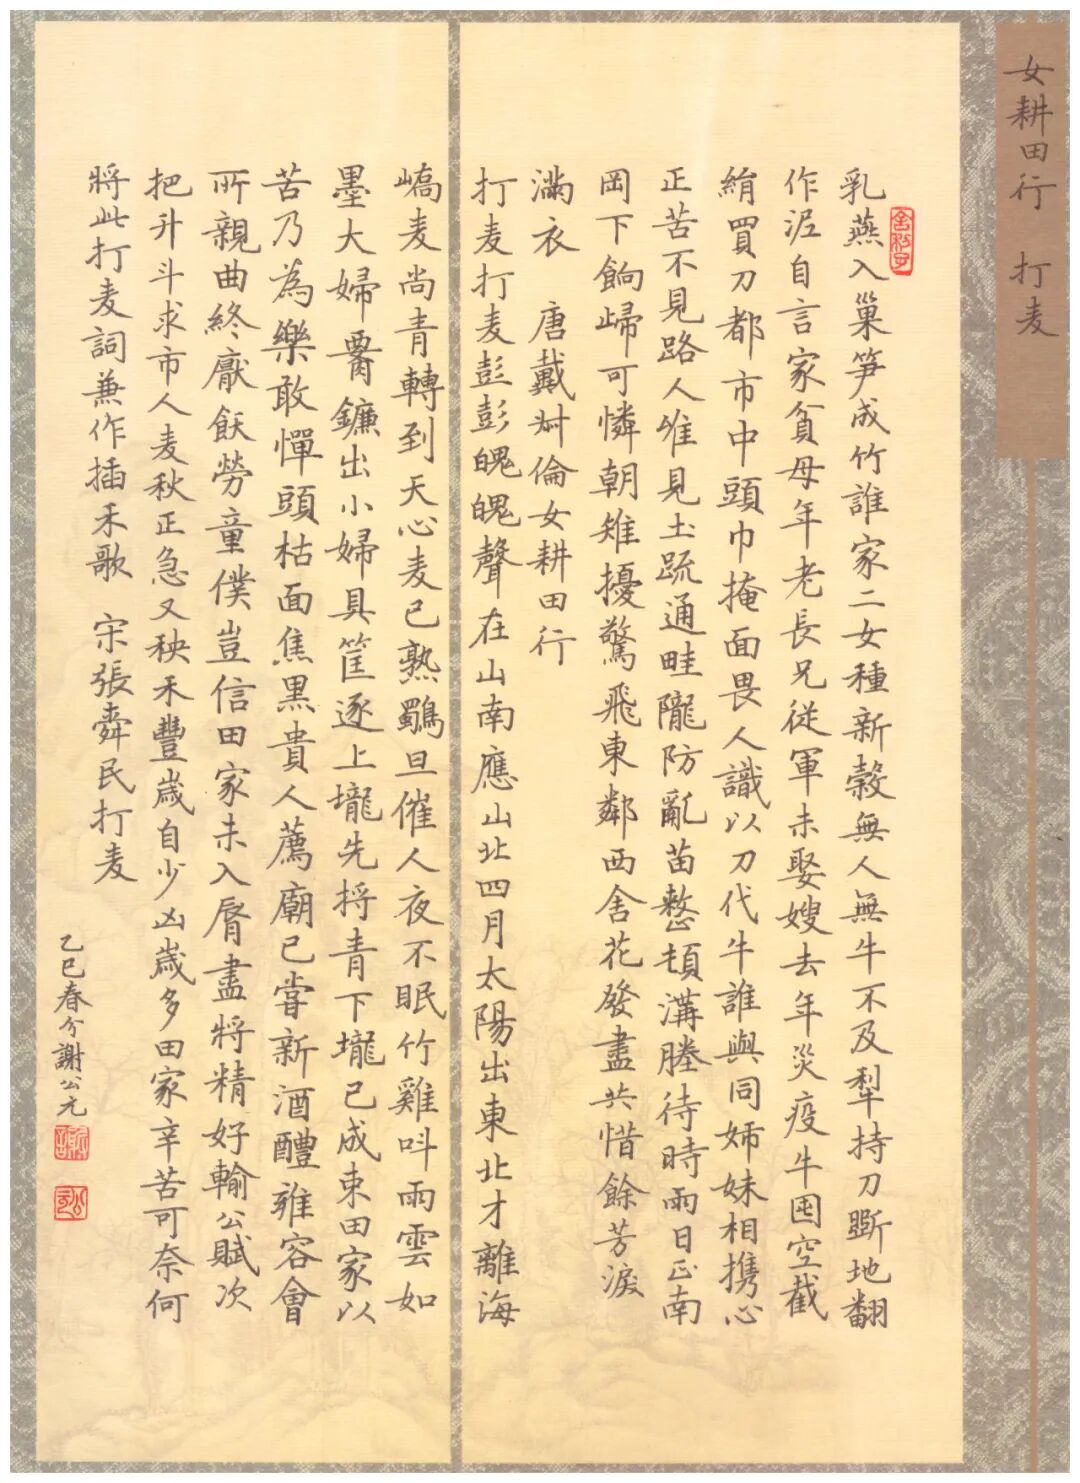 女耕田行 打麦
乳燕入巢笋成竹誰家二女種新榖無人無牛不及犁持刀斸地翻
作泥自言家貧母年老長兄從軍未娶嫂去年災疫牛囤空截
絹買刀都市中頭巾掩面畏人識以刀代牛誰與同姊妹相携心
正苦不見路人唯見土疏通畦隴防亂苗整頓溝塍待時雨日正南
岡下餉歸可憐朝雉擾驚飛東鄰西舍花發盡共惜餘芳淚
滿衣 唐戴叔倫女耕田行
打麦打麦彭彭魄魄聲在山南應山北四月太陽出東北才離海
嶠麦尚青轉到天心麦已熟鶡旦催人夜不眠竹雞呌雨雲如
墨大婦腰鐮出小婦具筐逐上壠先捋青下壠已成束田家以
苦乃為樂敢憚頭枯面焦黒貴人薦廟已嘗新酒醴雍容會
所親曲終厭飫勞童僕豈信田家未入脣盡將精好輸公賦次
把升斗求市人麦秋正急又秧禾豐歲自少凶歲多田家辛苦可奈何
將此打麦詞兼作插禾歌 宋張舜民打麦
乙巳春分謝公元